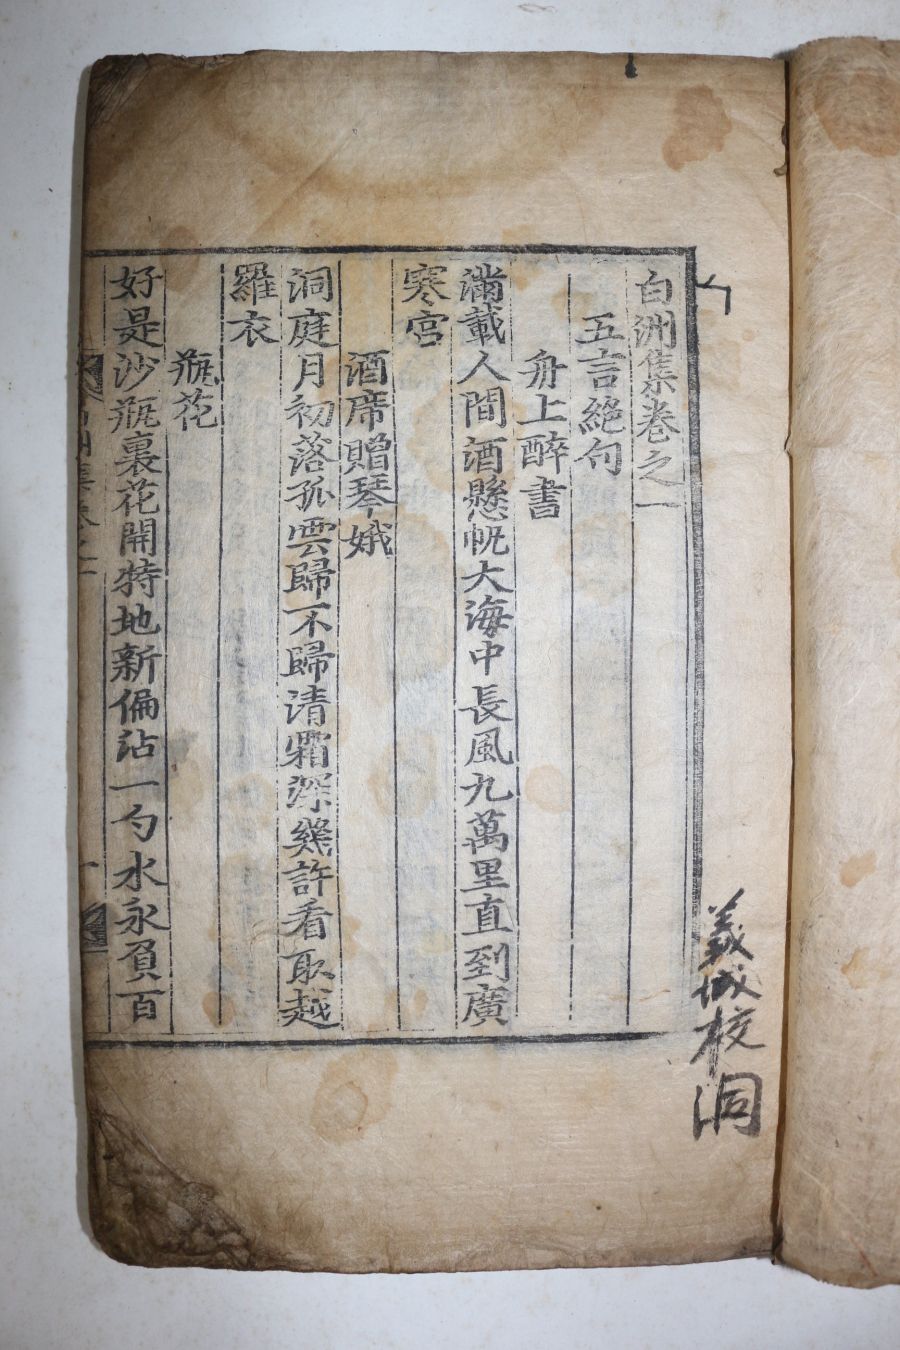 白洲集卷之一
五言絶句
舟上醉書
滿載人間酒懸帆大海中長風九萬里直到廣
寒宮
酒席贈琴娥
洞庭月初落孤雲歸不歸清霜深幾許看取越
羅衣
瓶花
好是沙瓶裏花開特地新偏沾一勺水永負百
義城校洞